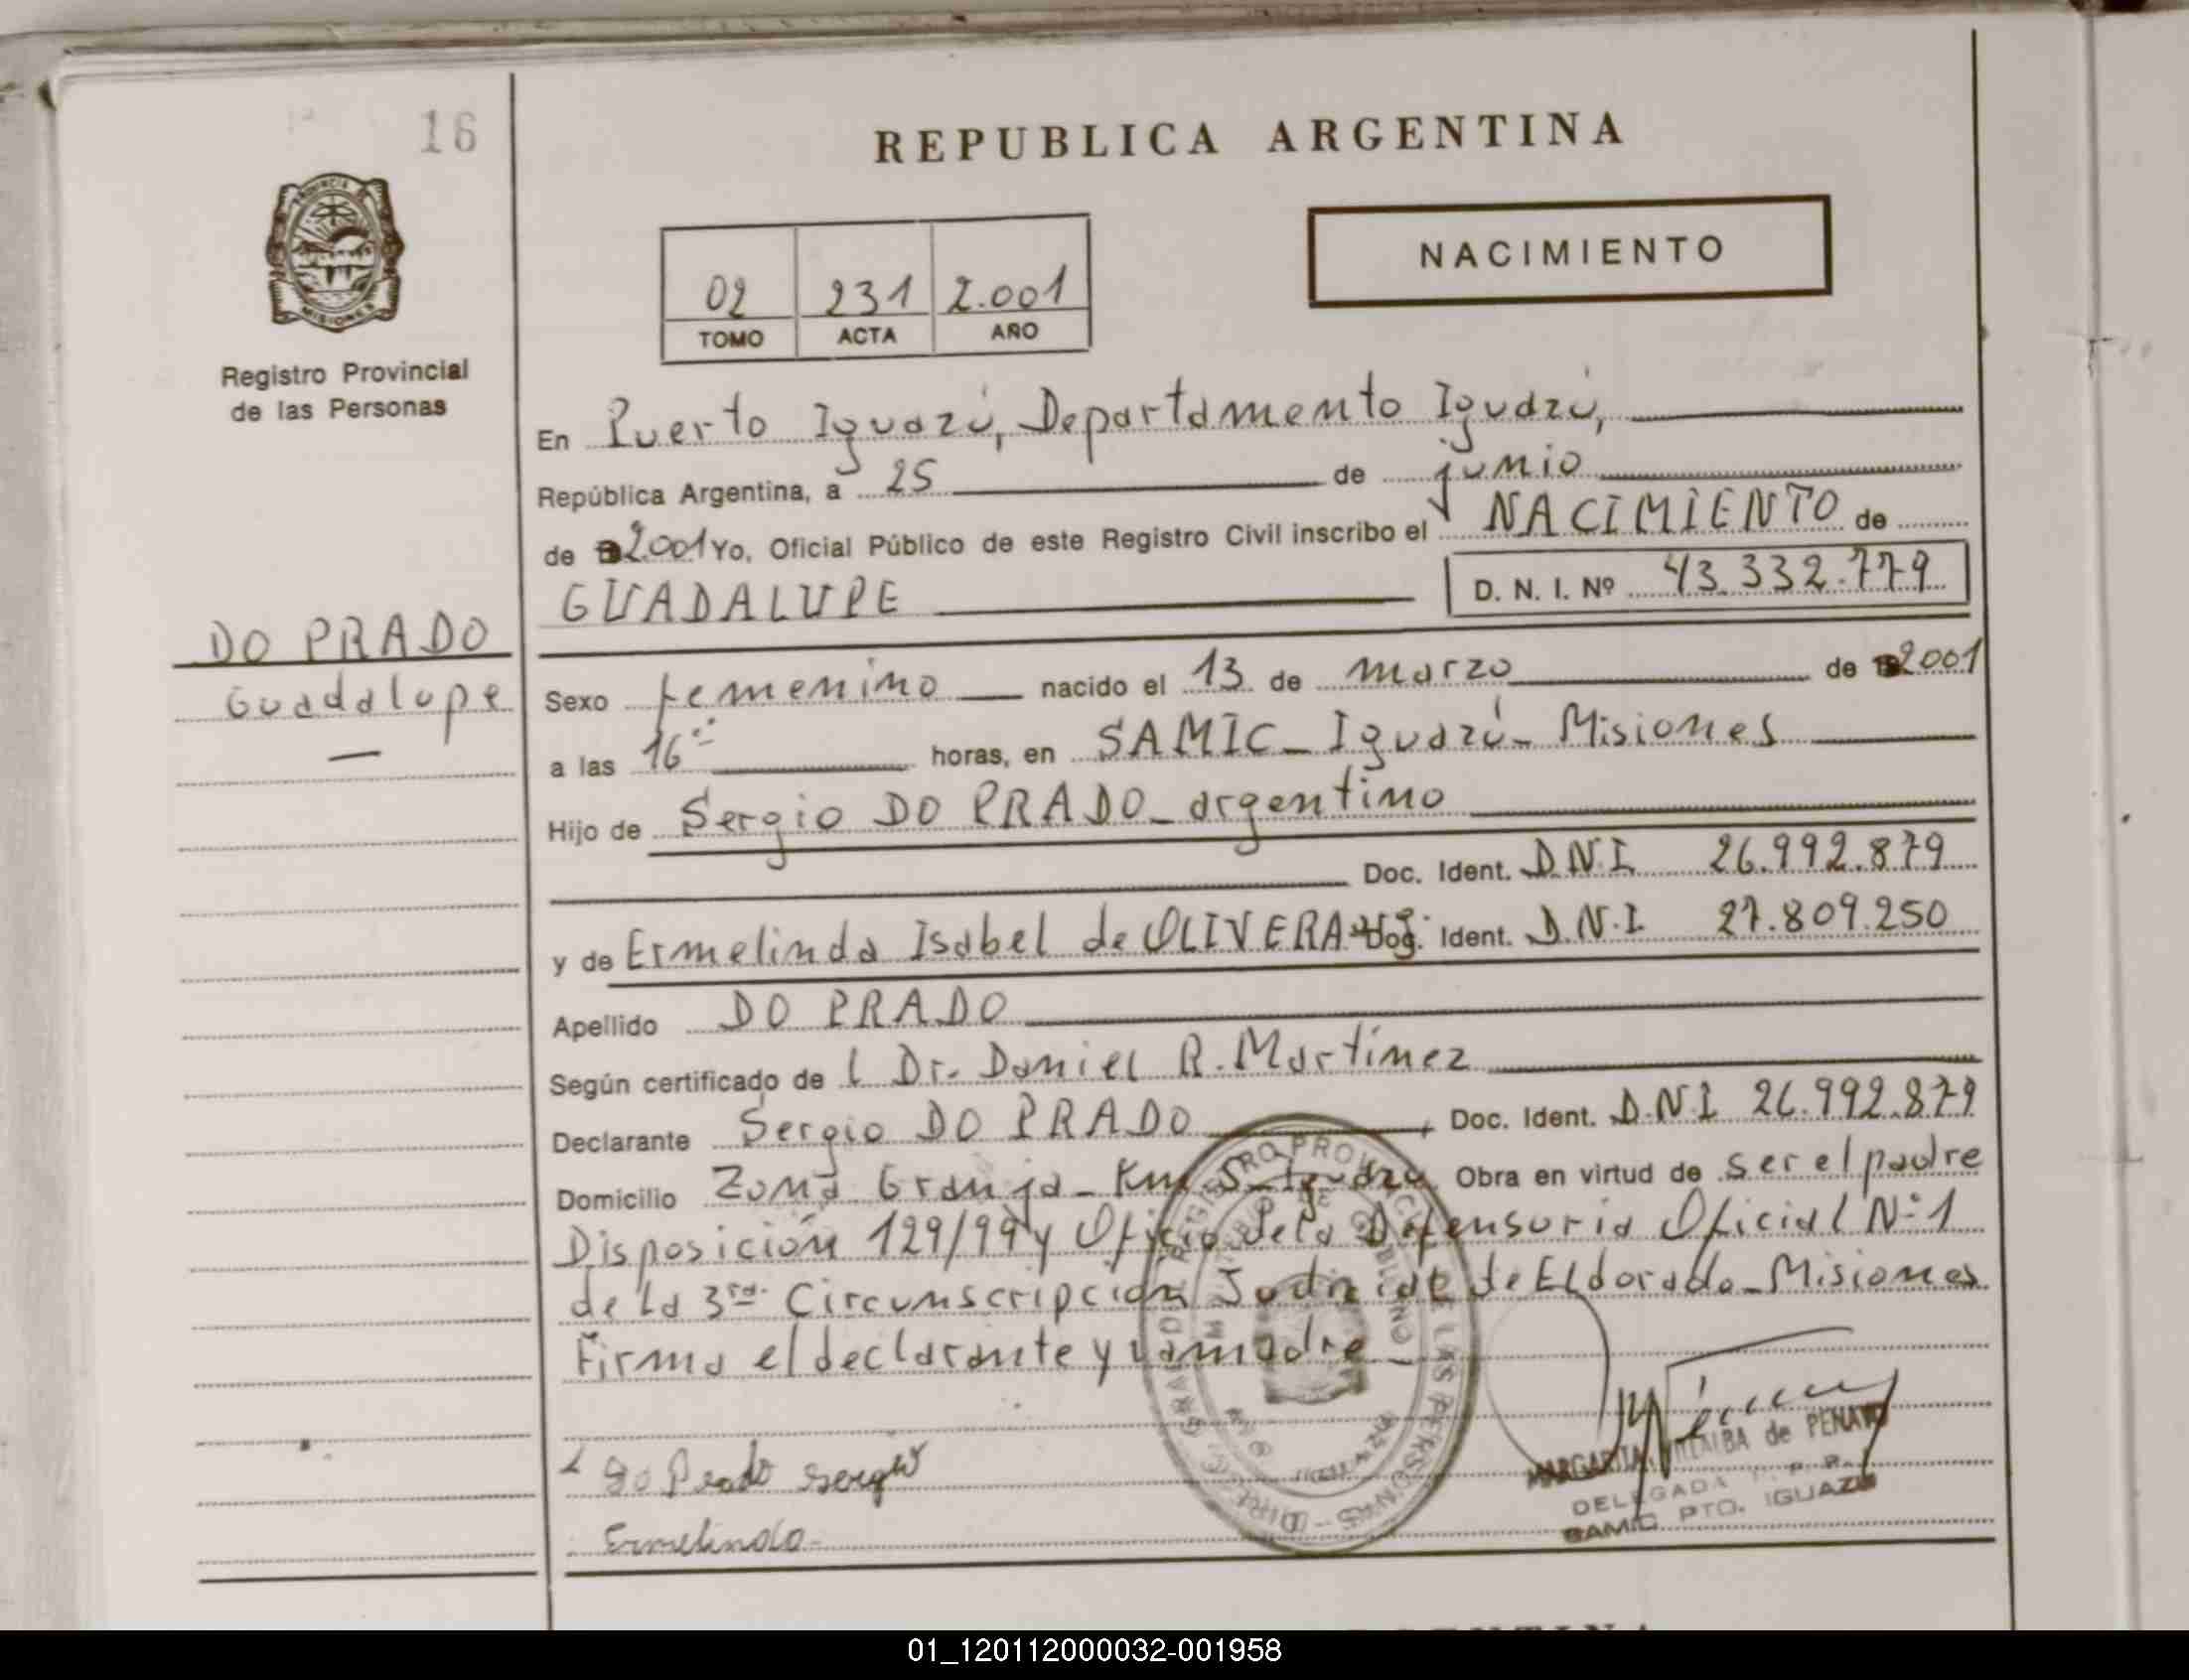 16
REPUBLICA ARGENTINA
PROVINCIA DE
MISIONES
Registro Provincial
de las Personas
NACIMIENTO
02 231 2.001
TOMO ACTA AÑO
En Puerto Iguazú, Departamento Iguazú,
República Argentina, a 25 de junio
de 2001 Yo, Oficial Público de este Registro Civil inscribo el NACIMIENTO de
GUADALUPE D. N. I. Nº 43.332.779
DO PRADO
Guadalupe
Sexo femenino nacido el 13 de marzo de 2001
a las 16 horas, en SAMIC_ Iguazú_ Misiones
Hijo de Sergio DO PRADO_ argentino
Doc. Ident. D.N.I 26.992.879
y de Ermelinda Isabel de OLIVERA Doc. Ident. D.N.I 27.809.250
Apellido DO PRADO
Según certificado de l Dr. Daniel R. Martínez
Declarante Sergio DO PRADO Doc. Ident. D.N.I 26.992.879
Domicilio Zona Granja_ Km 5_ Iguazú Obra en virtud de ser el padre
Disposición 129/99 y Oficio de la Defensoria Oficial Nº 1
de la 3ra. Circunscripción Judicial de Eldorado_ Misiones
Firma el declarante y la madre_
DIRECC. GRAL DEL REGISTRO PROVINCIAL DE LAS PERSONAS
MINISTERIO DE GOBIERNO
do Prado Sergio
Ermelinda
MARGARITA VILLALBA de PENAYO
DELEGADA R. P. P.
SAMIC PTO. IGUAZU
01_120112000032-001958